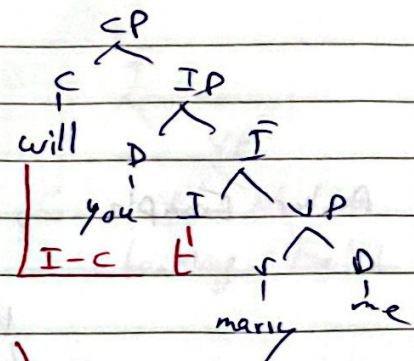 CP
C IP
will D Ī
you I VP
I-C t V D
marry me